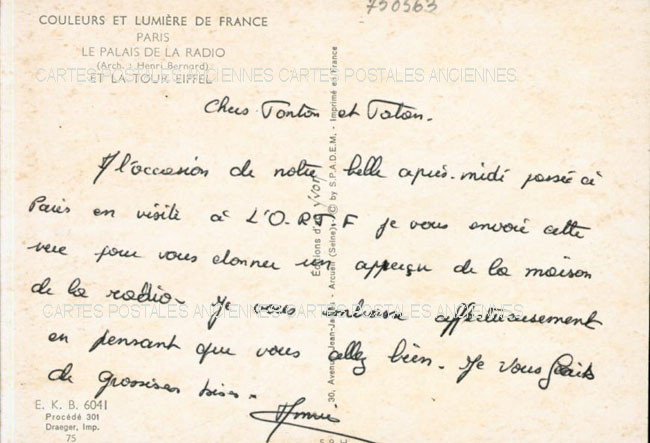 750563
COULEURS ET LUMIÈRE DE FRANCE
PARIS
LE PALAIS DE LA RADIO
(Arch. : Henri Bernard)
ET LA TOUR EIFFEL
CARTES POSTALES ANCIENNES CARTES POSTALES ANCIENNES
Chers Tonton et Taton.
A l'occasion de notre belle après-midi passée à
Paris en visite à L'O.RTF je vous envoie cette
vue pour vous donner un apperçu de la maison
de la radio. Je vous embrasse affectueusement
CARTES POSTALES ANCIENNES CARTES POSTALES ANCIENNES
en pensant que vous allez bien. Je vous fais
de grosises bises.
E. K. B. 6041
Procédé 301
Draeger, Imp.
75
Editions d'Art YVON
30, Avenue Jean-Jaurès, Arcueil (Seine). © by S.P.A.D.E.M. - Imprimé en France